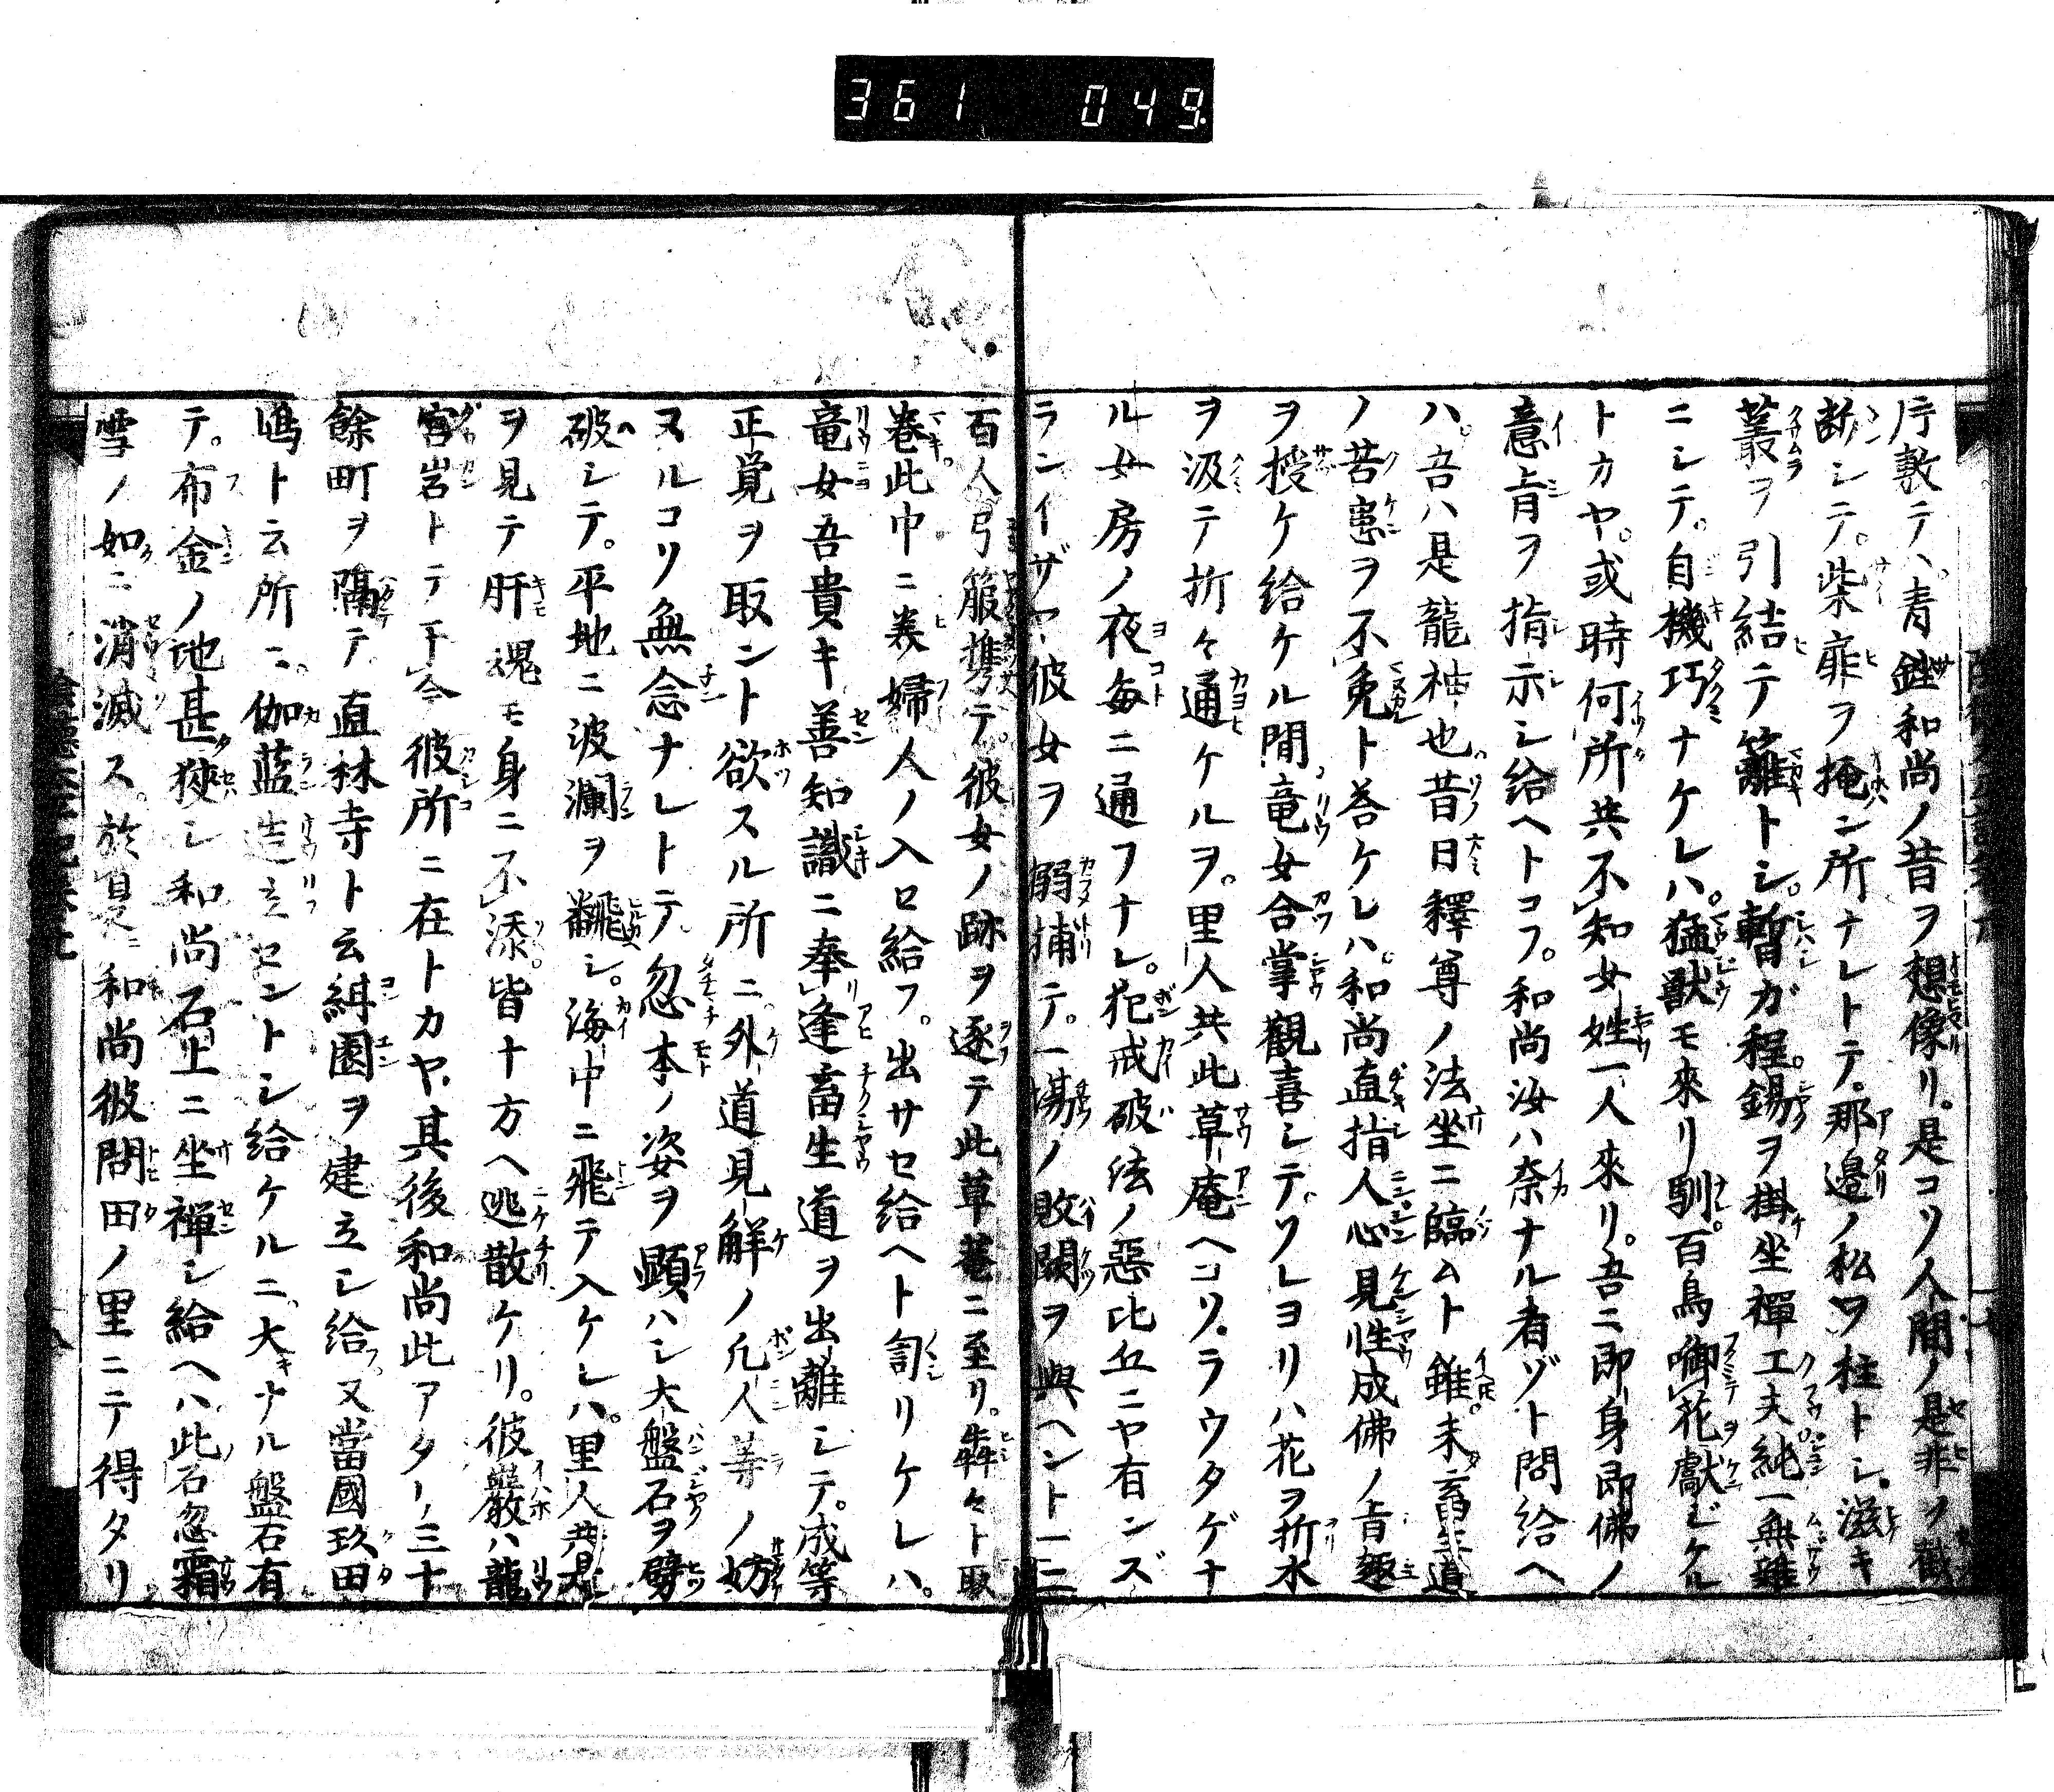 361 049.
庁敷テハ。青銼和尚ノ昔ヲ想像リ。是コソ人間ノ是非ヲ截
断シテ。柴扉ヲ掩ン所ナレトテ。那邊ノ松ヲ柱トシ。滋キ
叢ヲ引結テ籬トシ。暫ガ程。錫ヲ掛坐禪工夫純一無雜
ニシテ。自機巧ナケレハ。猛獣モ來リ馴。百鳥啣花獻ジケル
トカヤ。或時何所共不知女姓一人來リ。吾ニ即身即佛ノ
意旨ヲ指示シ給ヘトコフ。和尚汝ハ奈ナル者ゾト問給ヘ
ハ。吾ハ是龍神也。昔日釋尊ノ法坐ニ臨ムト雖。未畜生道
ノ苦患ヲ不免ト荅ケレハ。和尚直指人心見性成佛ノ旨趣
ヲ授ケ給ケル間。竜女合掌觀喜シテ。ソレヨリハ花ヲ折水
ヲ汲テ折々通ケルヲ。里人共此草庵ヘコソ。ラウタゲナ
ル女房ノ夜毎ニ通フナレ。犯戒破法ノ惡比丘ニヤ有ンズ
ランイザヤ彼女ヲ搦捕テ。一場ノ敗闕ヲ與ヘント一二
百人弓箙携テ。彼女ノ跡ヲ逐テ此草菴ニ至リ。犇々ト取
巻。此中ニ義婦人ノ入ロ給フ。出サセ給ヘト訇リケレハ。
竜女吾貴キ善知識ニ奉逢畜生道ヲ出離シテ。成等
正覚ヲ取ント欲スル所ニ。外道見解ノ凡人等ノ妨
ヌルコソ無念ナレトテ。忽本ノ姿ヲ顕ハシ大盤石ヲ劈
破シテ。平地ニ波瀾ヲ飜シ。海中ニ飛テ入ケレハ。里人共是
ヲ見テ肝魂モ身ニ不添。皆十方ヘ迯散ケリ。彼巌ハ龍
宮岩トテ于今彼所ニ在トカヤ。其後和尚此アタリ三十
餘町ヲ隔テ。直林寺ト云紺園ヲ建立シ給フ。又當國玖田
嶋ト云所ニ。伽藍造立セントシ給ケルニ。大キナル盤石有
テ。布金ノ地甚狹シ和尚石上ニ坐禪シ給ヘハ此石忽霜
雪ノ如ニ消滅ス。於是和尚彼問田ノ里ニテ得タリ